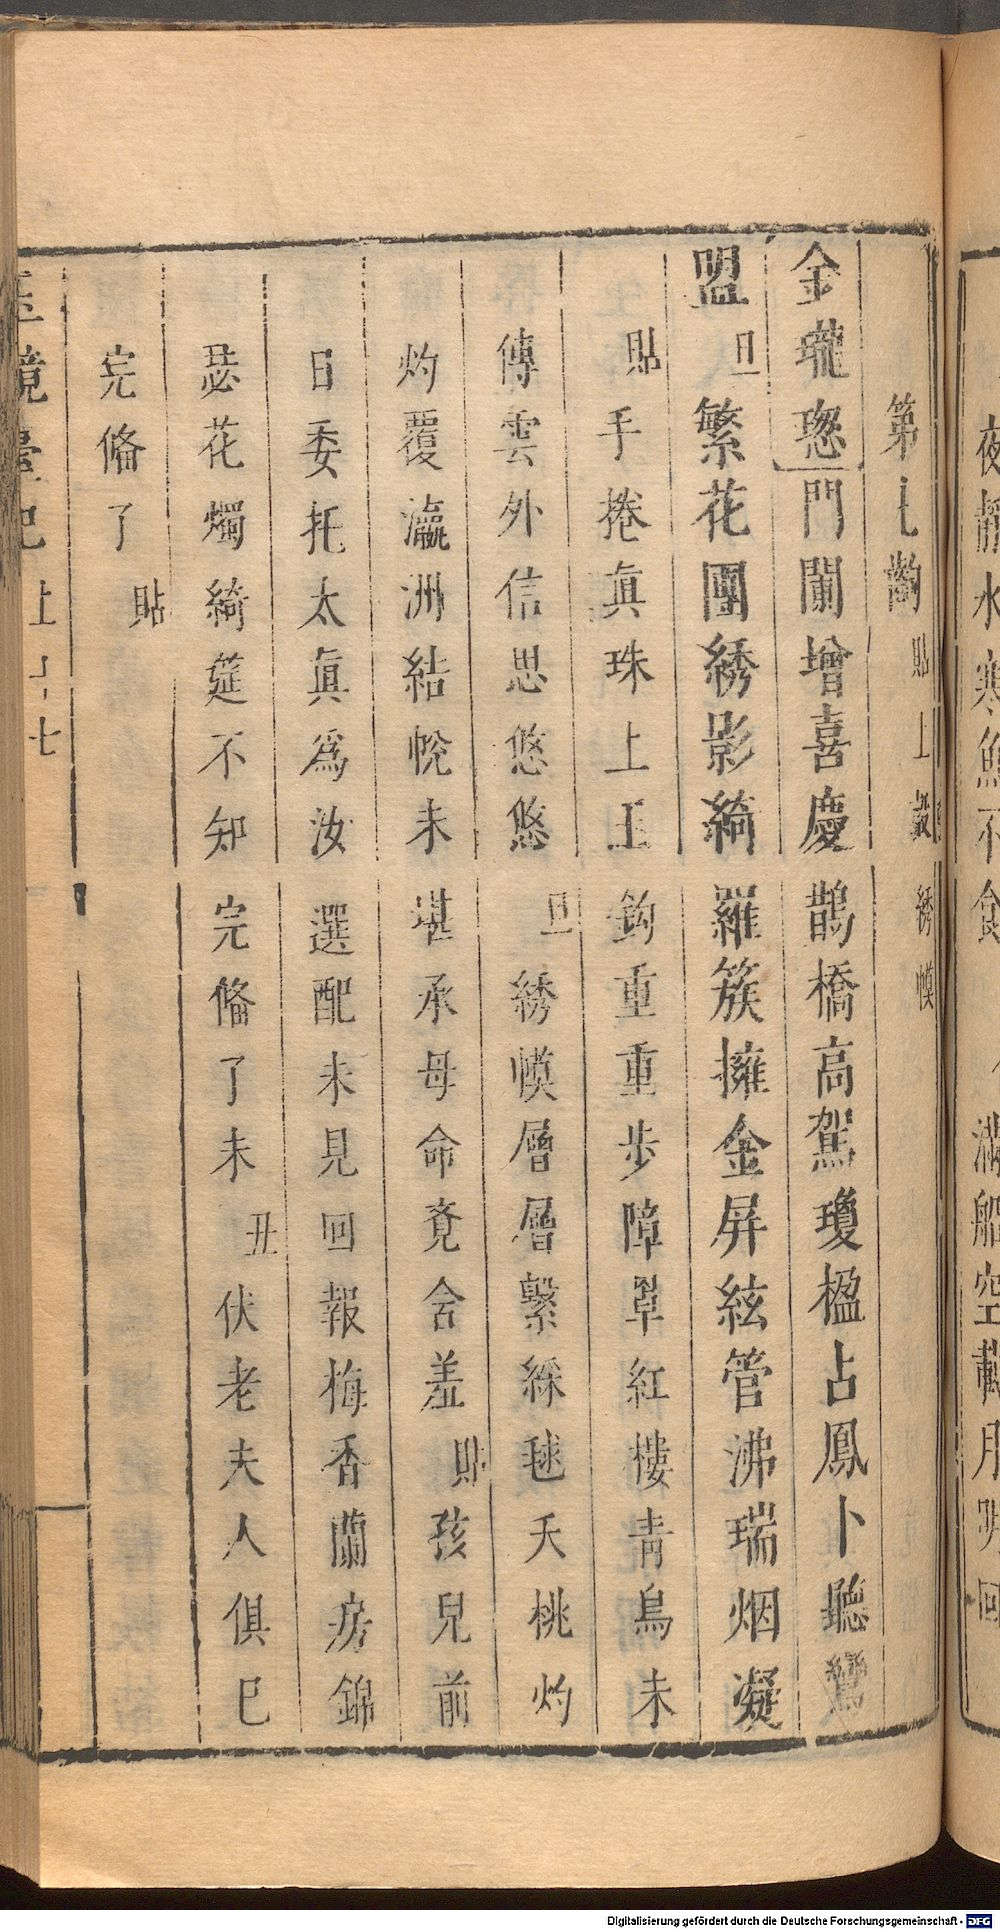 夜靜水寒魚不食　滿船空載月明回
第七齣　貼上　設綉幙
金瓏璁　門闌增喜慶鵲橋高駕瓊楹占鳳卜聽鸞
盟　旦　繁花團綉影綺羅簇擁金屏絃管沸瑞烟凝
貼　手捲真珠上玉鈎重重步障罩紅樓青鳥未
傳雲外信思悠悠　旦　綉幙層層繫綵毬夭桃灼
灼覆瀛洲結帨未堪承母命竟含羞　貼　孩兒前
日委托太真爲汝選配未見回報梅香蘭房錦
瑟花燭綺筵不知完俻了未　丑　伏老夫人俱已
完俻了　貼
玉鏡臺記　上　七
Digitalisierung gefördert durch die Deutsche Forschungsgemeinschaft - DFG